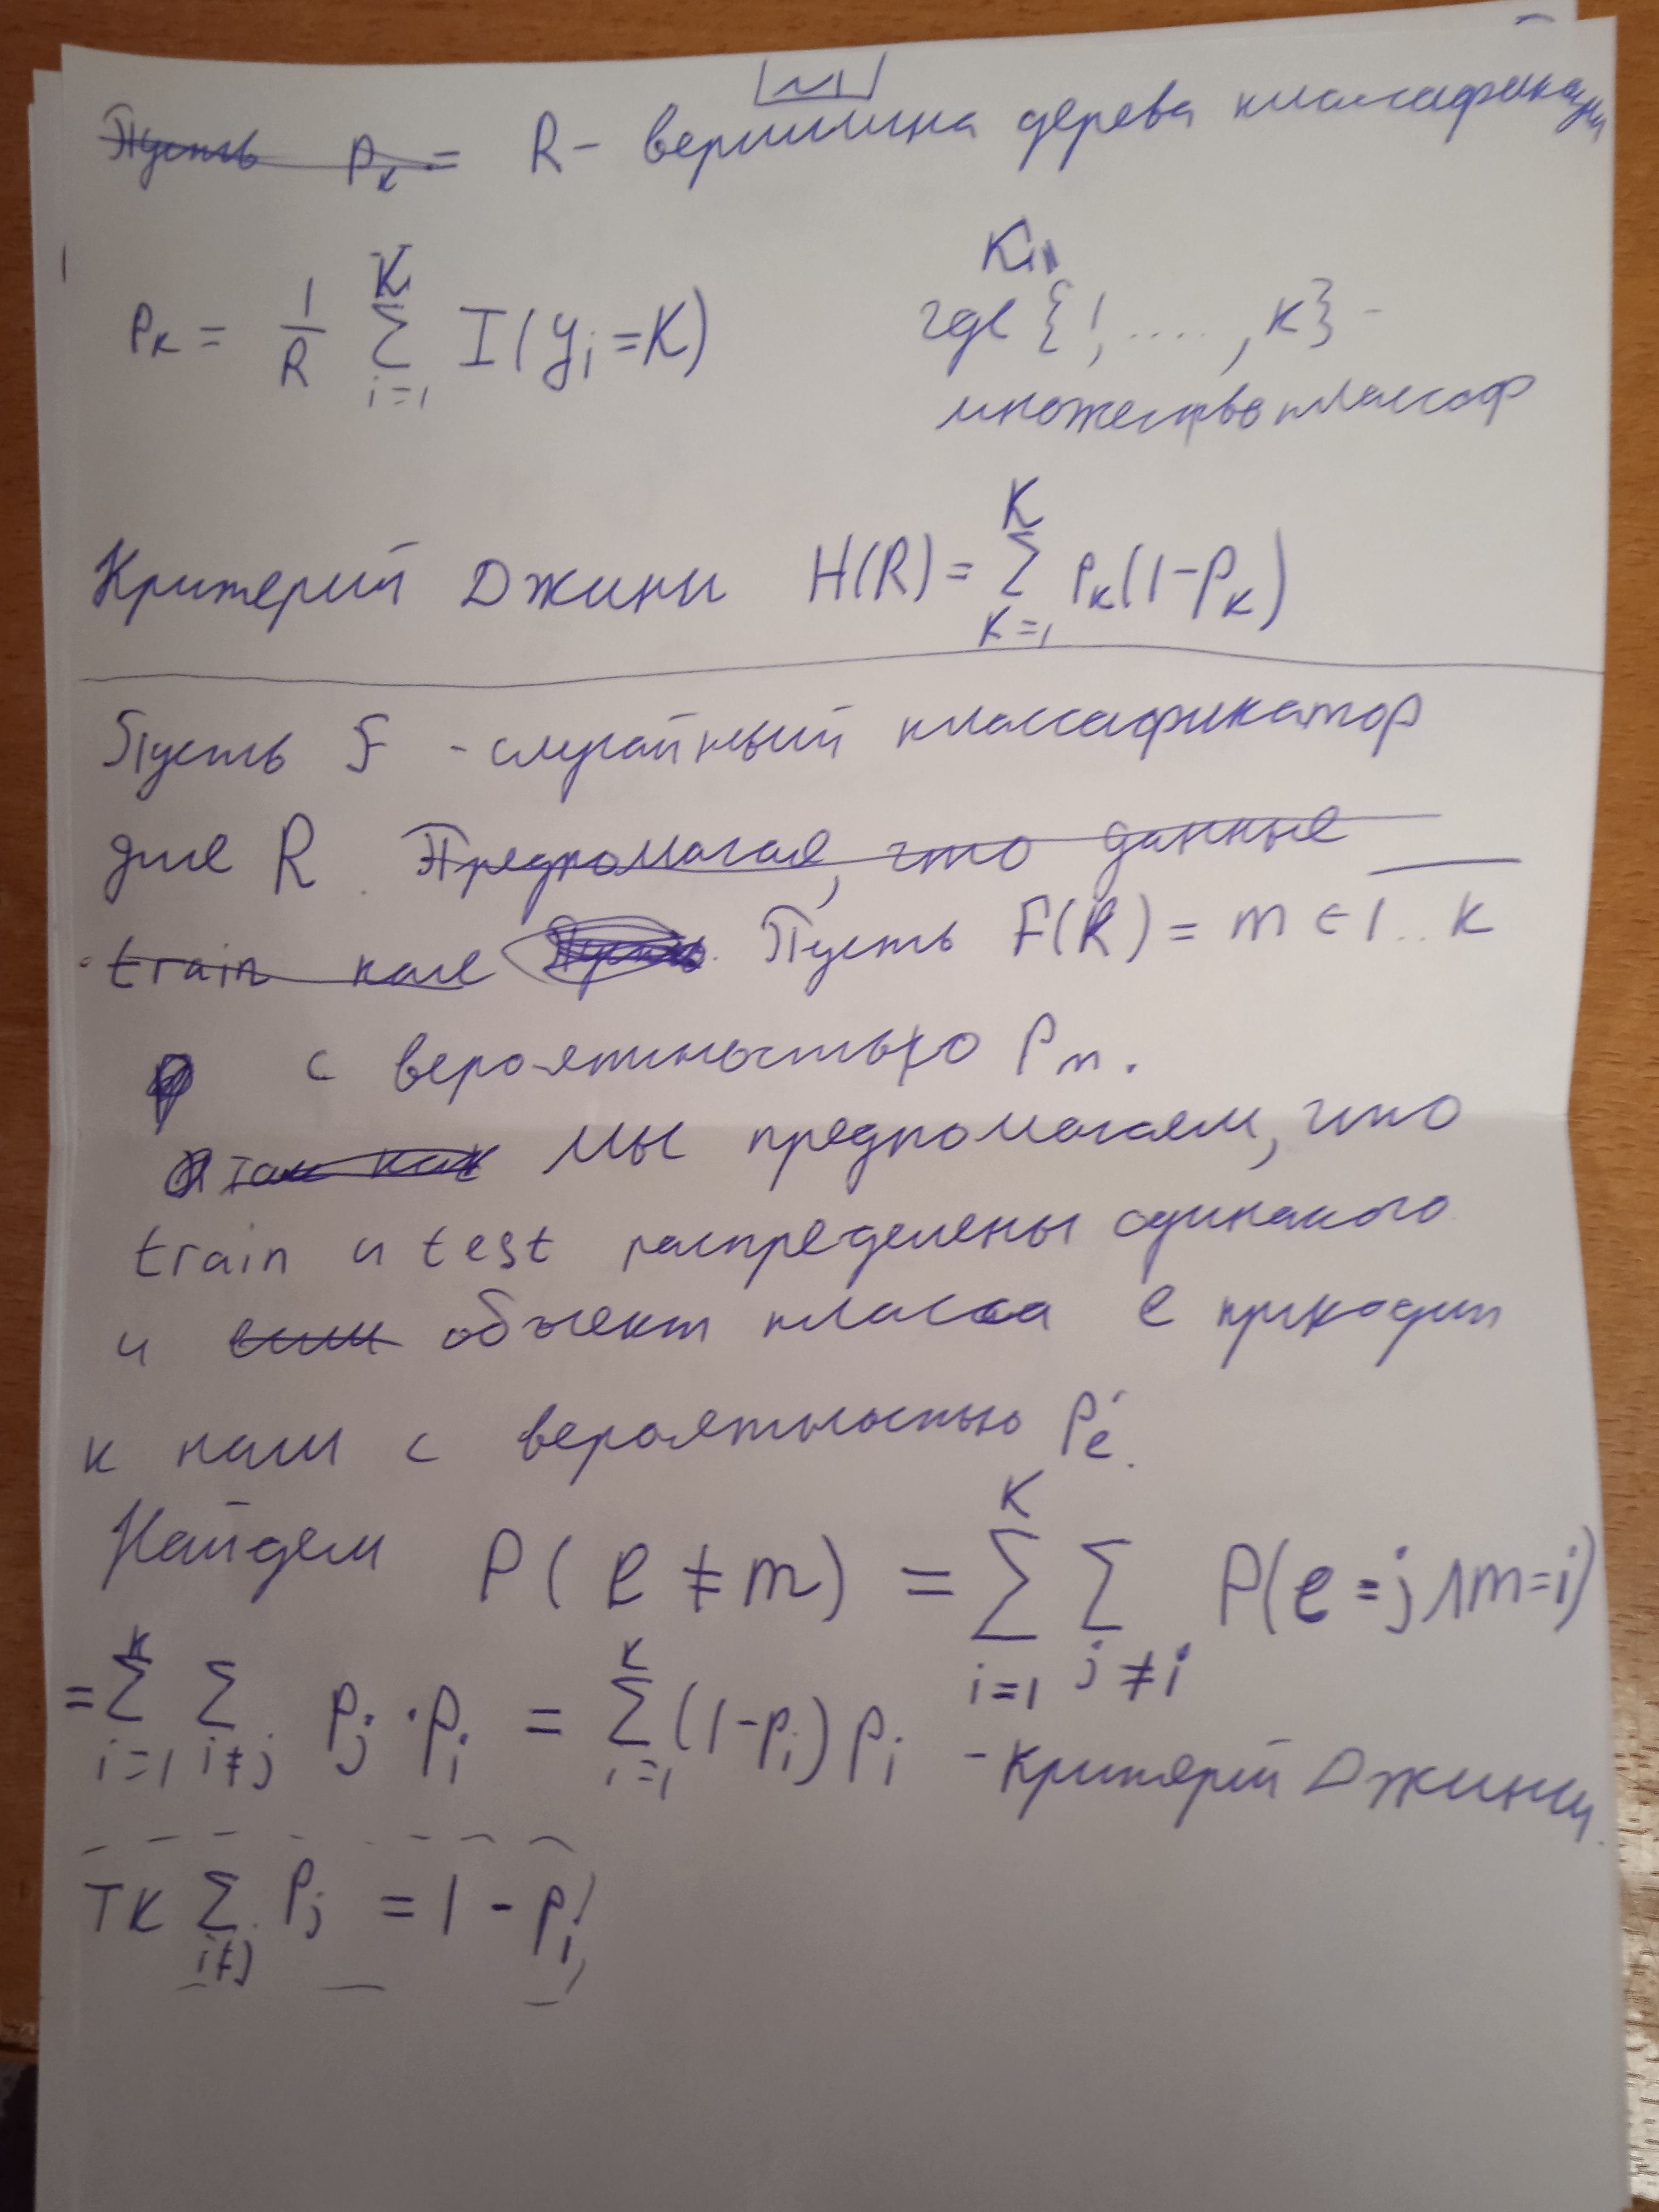 №1
Пусть p_k = R - вершина дерева классификации
p_k = 1/R K∑i=1 I(y_i = K) где {1, ...., K} -
множество классоф
Критерий Джини H(R) = K∑k=1 p_k(1-p_k)
Пусть F - случайный классификатор
для R. Предполагая, что данные
train как Пусть. Пусть F(R) = m ∈ 1..K
с вероятностью P_m.
так как Мы предполагаем, что
train и test распределены одинаково
и если объект класса l приходит
к нам с вероятностью P_l.
Найдем P(l ≠ m) = K∑i=1 ∑j≠i P(l = j ∧ m = i)
= K∑i=1 ∑i≠j p_j · p_i = K∑i=1 (1-p_i) p_i - Критерий Джини.
тк ∑i≠j p_j = 1 - p_i